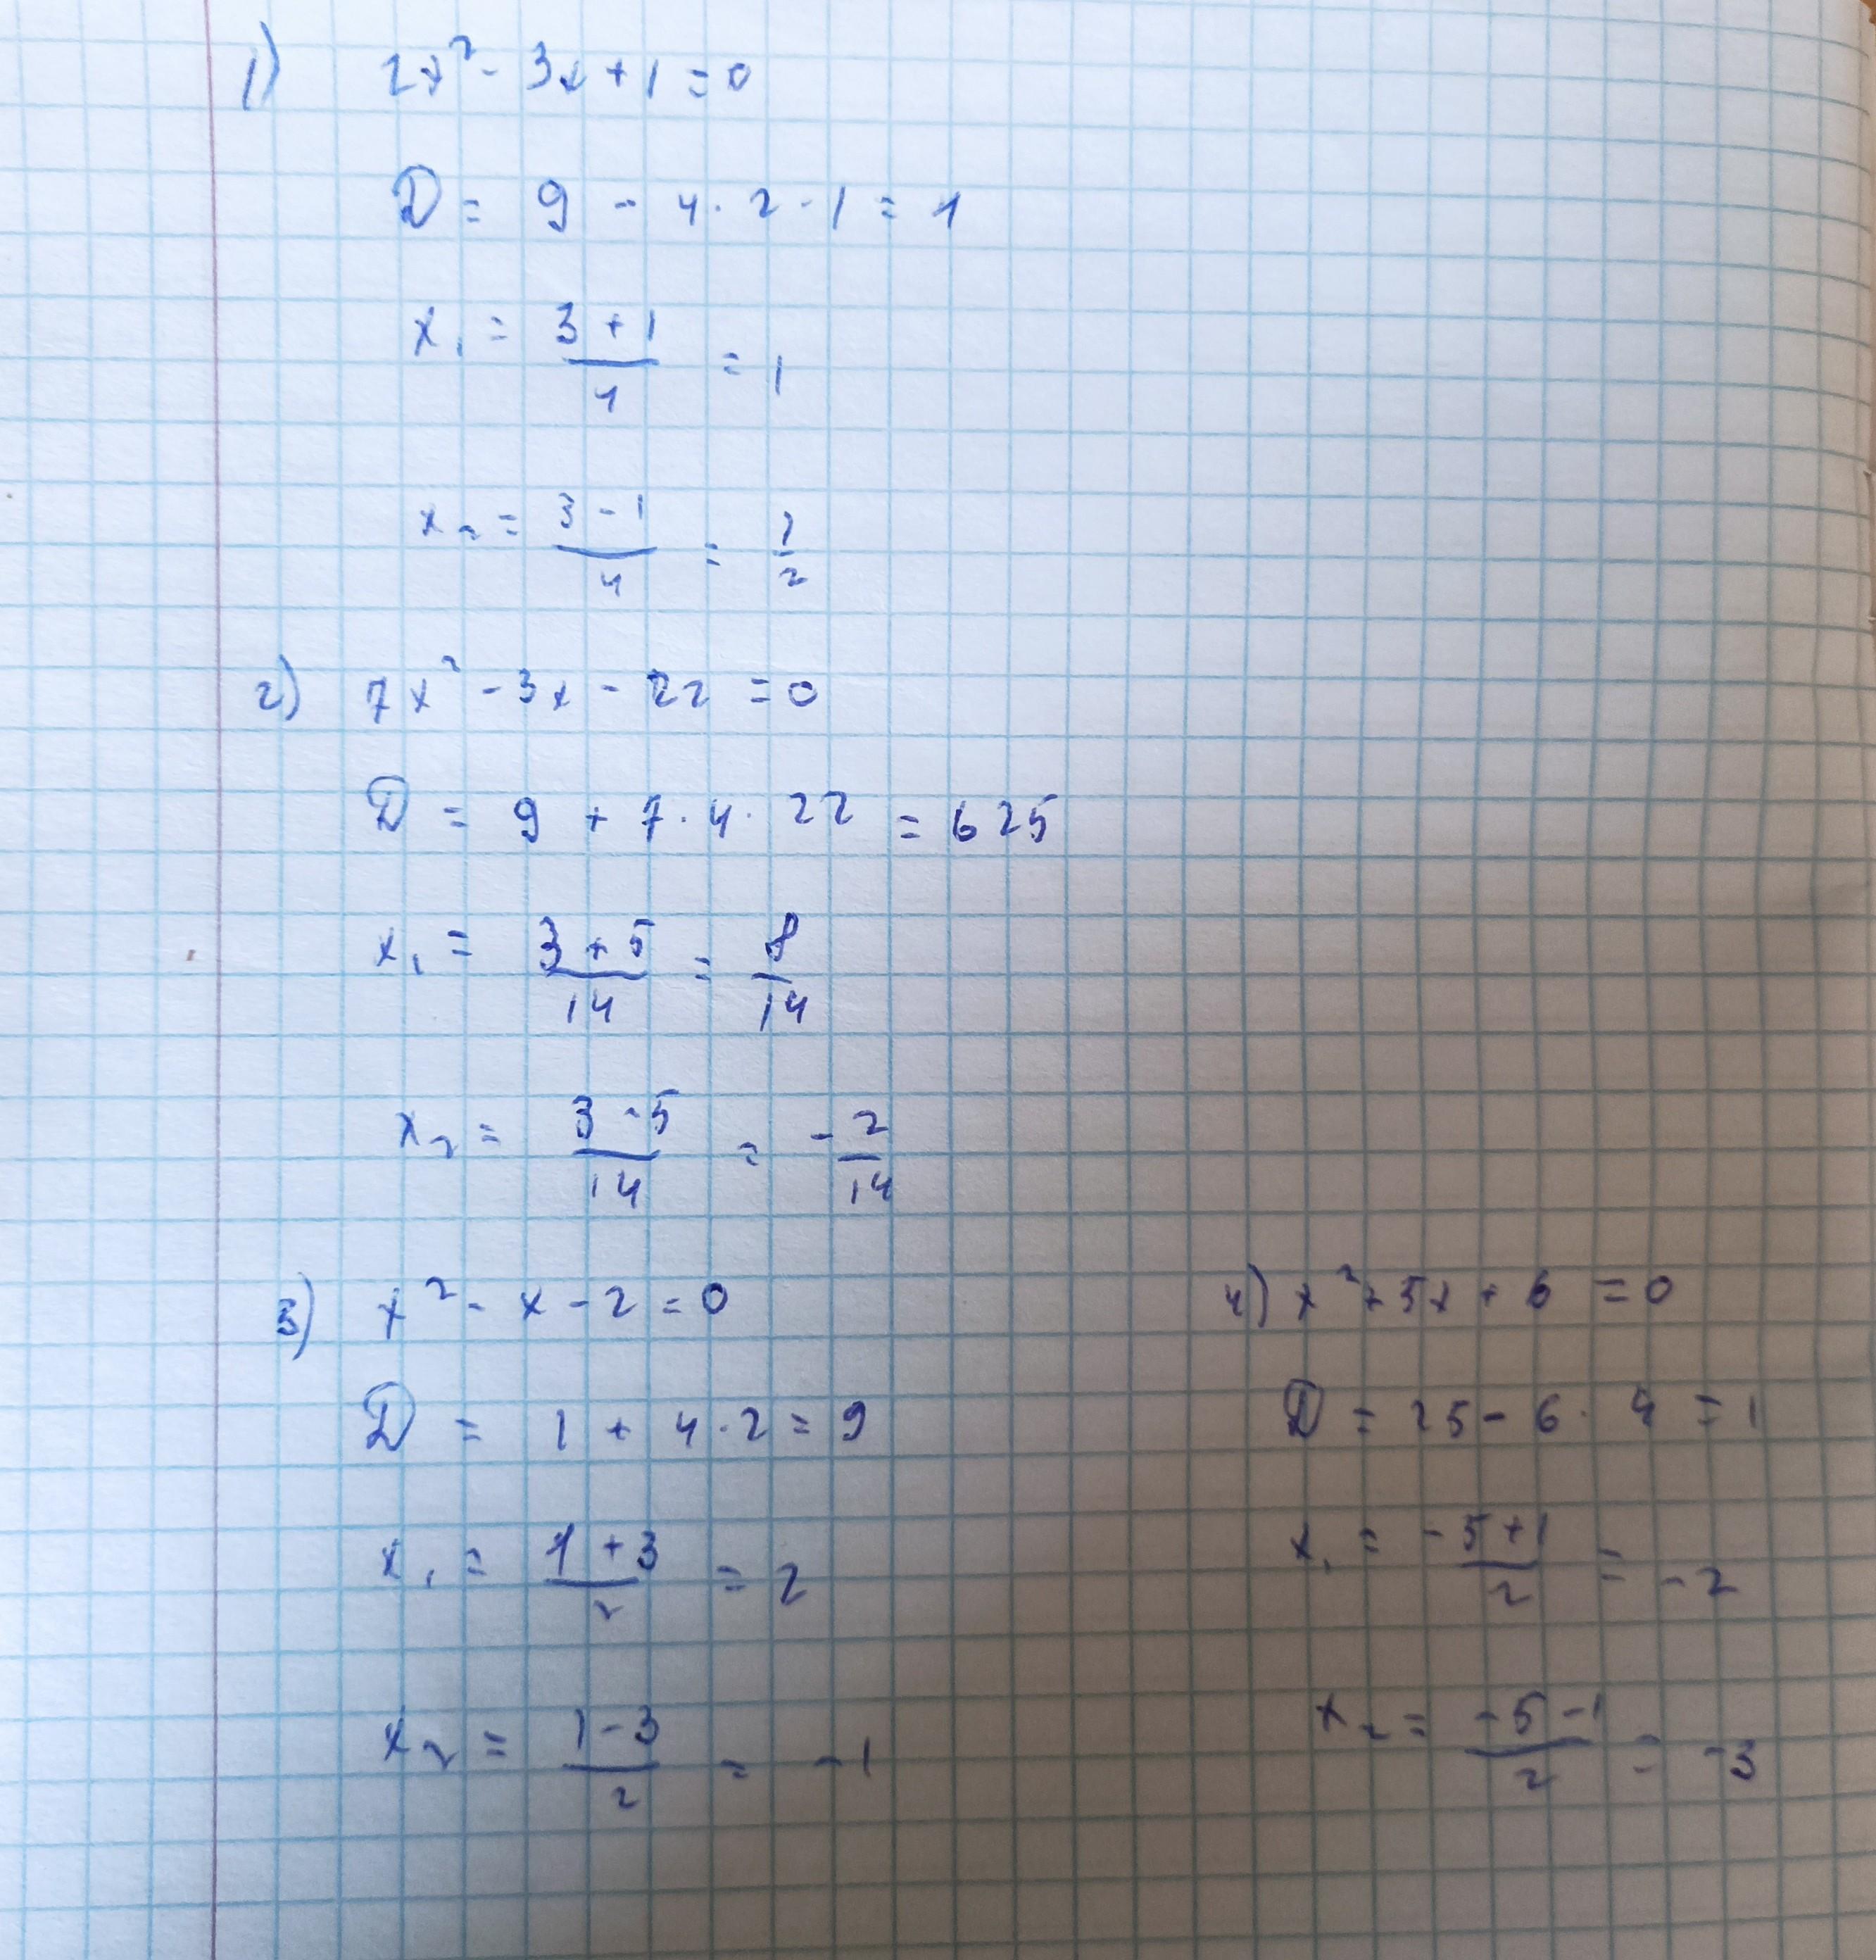 1) 2x² - 3x + 1 = 0
D = 9 - 4 · 2 · 1 = 1
x₁ = (3 + 1)/4 = 1
x₂ = (3 - 1)/4 = 1/2
2) 7x² - 3x - 22 = 0
D = 9 + 7 · 4 · 22 = 625
x₁ = (3 + 5)/14 = 8/14
x₂ = (3 - 5)/14 = -2/14
3) x² - x - 2 = 0
D = 1 + 4 · 2 = 9
x₁ = (1 + 3)/2 = 2
x₂ = (1 - 3)/2 = -1
4) x² + 5x + 6 = 0
D = 25 - 6 · 4 = 1
x₁ = (-5 + 1)/2 = -2
x₂ = (-5 - 1)/2 = -3